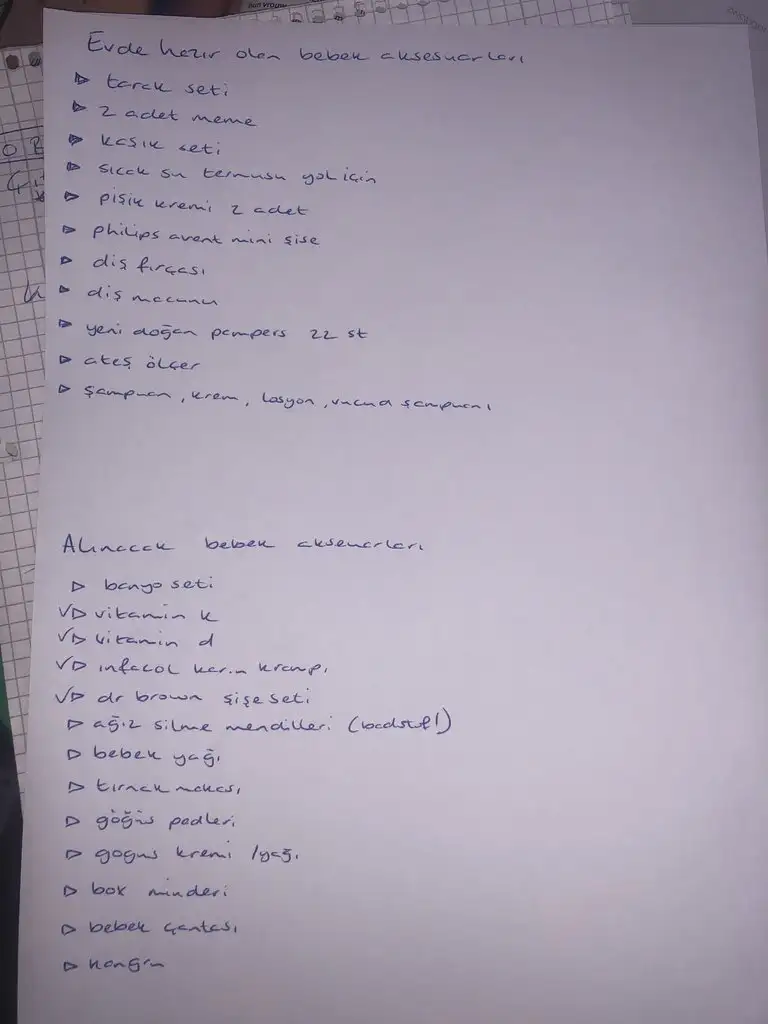 Evde hazır olan bebek aksesuarları
tarak seti
2 adet meme
kaşık seti
sıcak su termusu yol için
pişik kremi 2 adet
philips avent mini şişe
diş fırçası
diş macunu
yeni doğan pampers 22 st
ateş ölçer
şampuan, krem, losyon, vucud şampuanı
Alınacak bebek aksesuarları
banyo seti
√ vitamin k
√ vitamin d
√ infacol karın krampı
√ dr brown şişe seti
ağız silme mendilleri
bebek yağı
tırnak makası
göğüs pedleri
gogus kremi /yağı
box minderi
bebek çantası